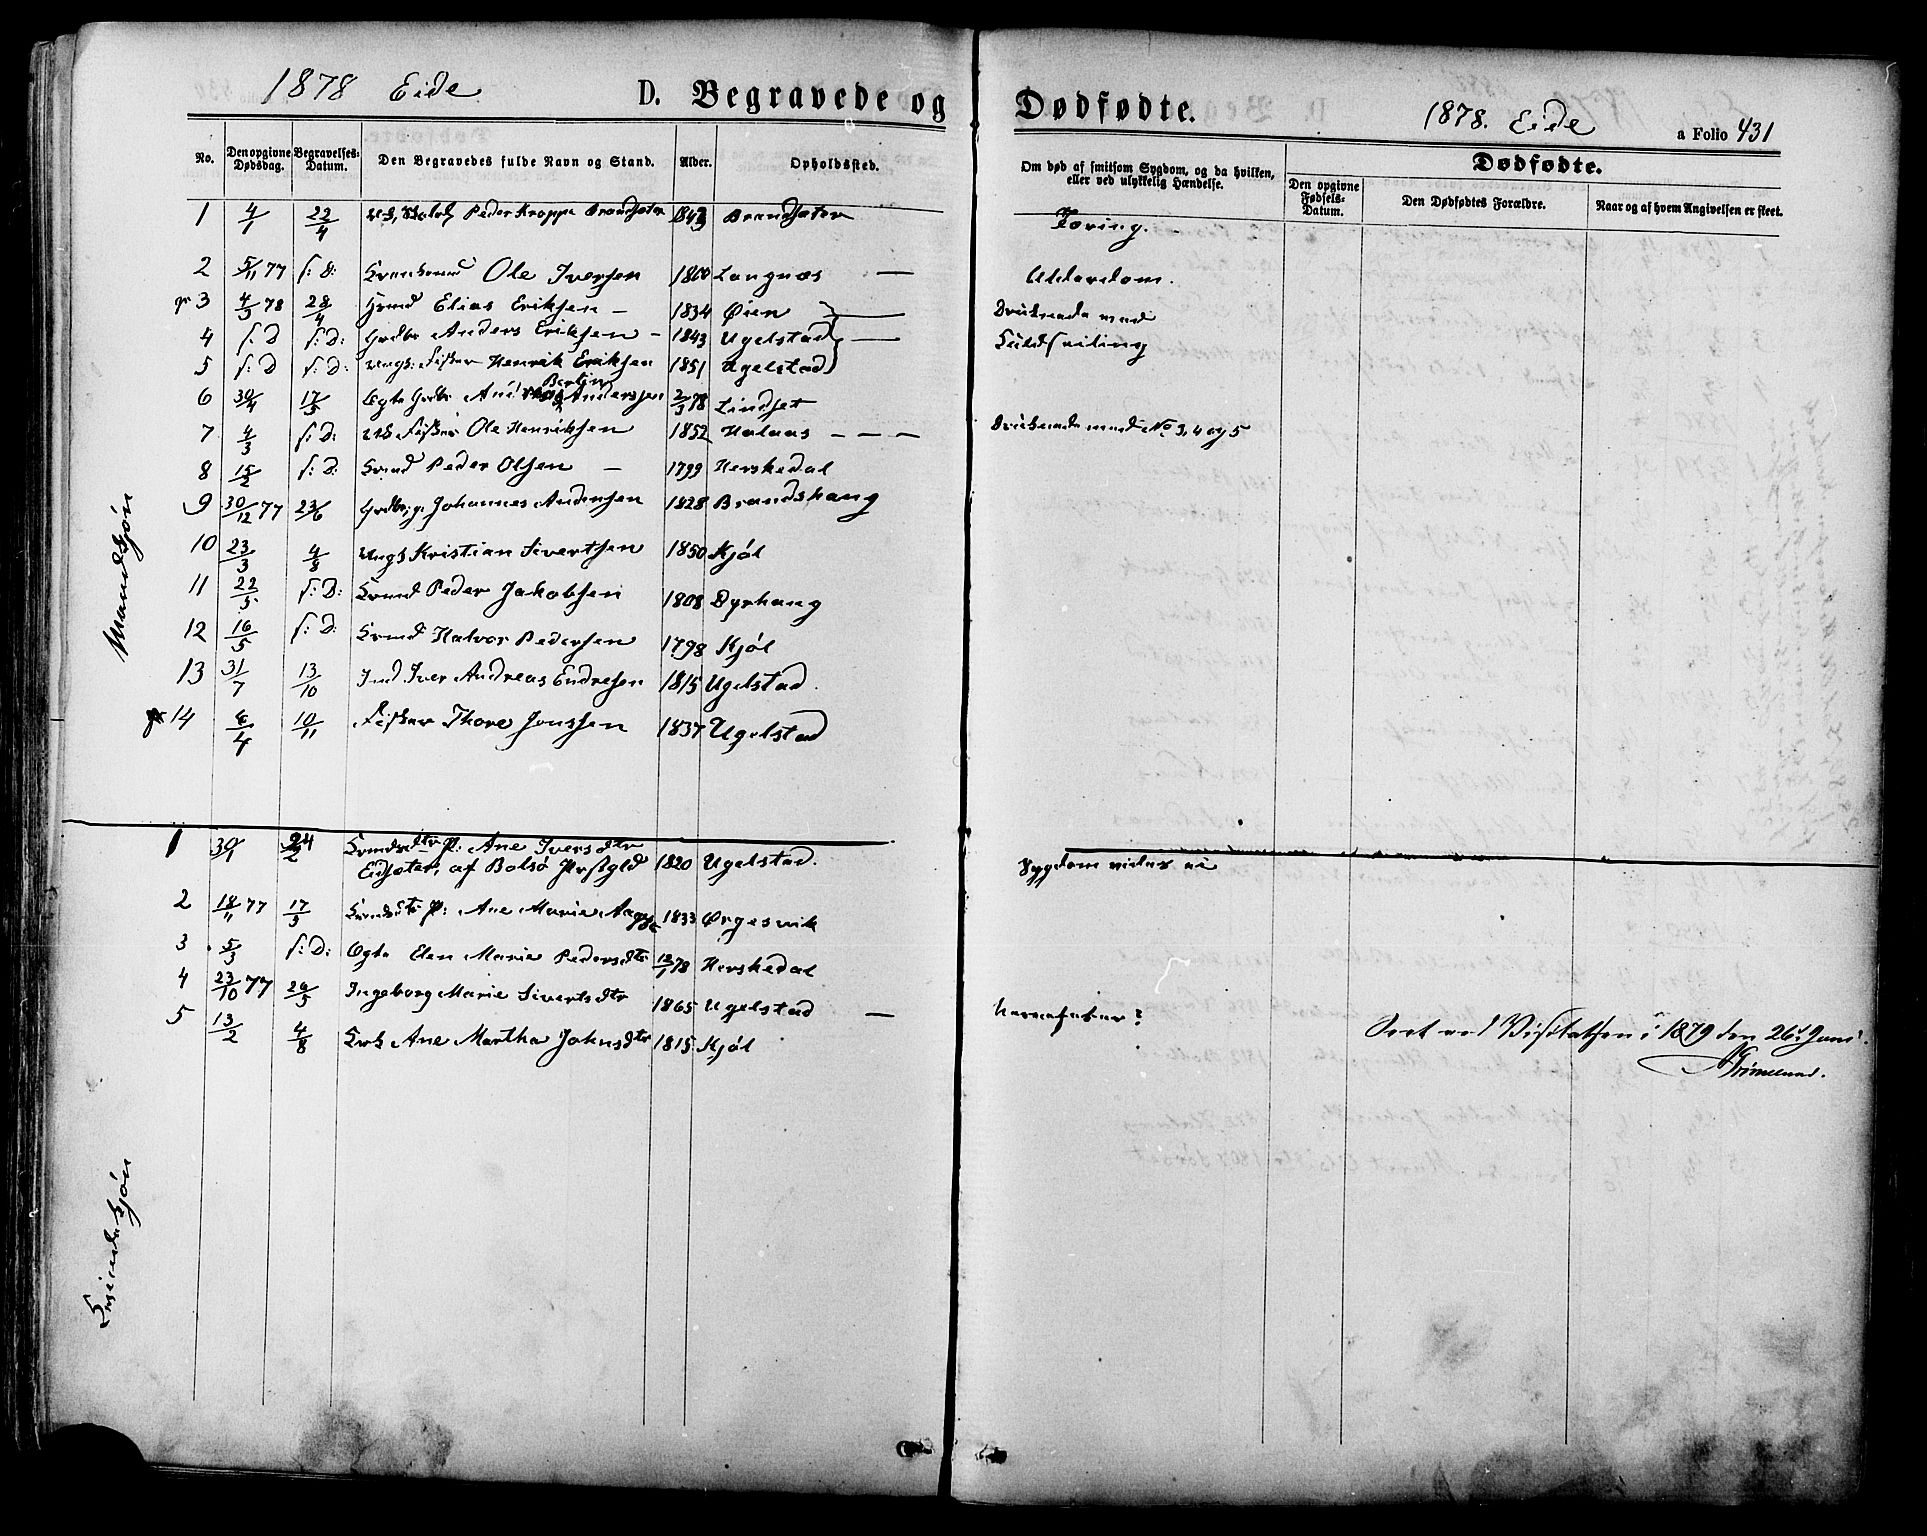 1878 Eide
D. Begravede og Dødfødte.
1878. Eide
a Folio 431
No. Den opgivne Dødsdag. Begravelses-Datum. Den Begravedes fulde Navn og Stand. Alder. Opholdssted.
Om død af smitsom Sygdom, og da hvilken, eller ved ulykkelig Hændelse.
Dødfødte.
Den opgivne Fødsels-Datum. Den Dødfødtes Forældre. Naar og af hvem Angivelsen er skeet.
Mandkjøn
1 4/1 22/4 Peder Brandsæter 1843 Brandsæter Tæring.
2 5/11 77 s: D: Ole Iversen 1800 Langnæs — Alderdom.
3 4/3 78 28/4 Elias Eriksen — 1834 Øien — Druknede med
4 s: D s: D: Anders Eriksen — 1843 Ugelstad — Kuldseiling
5 s: D s: D: Fisker Henrik Eriksen 1851 Ugelstad
6 30/4 17/5 Ægte Bertin Anderssen 2/3 78 Lindset
7 4/3 s: D: Fisker Ole Henriksen 1852 Halaas — — — Druknede med No 3, 4 og 5
8 15/2 s: D: Peder Olsen — 1799 Herskedal
9 30/12 77 23/6 Johannes Andersen 1828 Brandshaug
10 23/3 4/8 Ungk Kristian Sivertsen 1850 Kjøl
11 22/5 s: D: Peder Jakobsen 1808 Dyrhaug
12 16/5 s: D: Halvor Pedersen 1798 Kjøl
13 31/7 13/10 Ind Iver Andreas Endresen 1815 Ugelstad.
14 6/4 10/11 Fisker Thore Jonssen 1837 Ugelstad
Kvindekjøn
1 30/1 24/2 P: Ane Iversdtr
Eidsæter, af Bolsø Prstgld 1820 Ugelstad. Sygdom vides ei
2 18/11 77 17/5 P: Ane Marie 1833 Ørgesvik
3 5/3 s: D: Ægte Elen Marie Pedersdtr 12/1 78 Herskedal
4 23/10 77 26/5 Ingeborg Marie Sivertsdtr 1865 Ugelstad — Nervefeber?
5 13/2 4/8 Ane Martha Johnsdtr 1815 Kjøl
Seet ved Visitatsen i 1879 den 26 Juni.